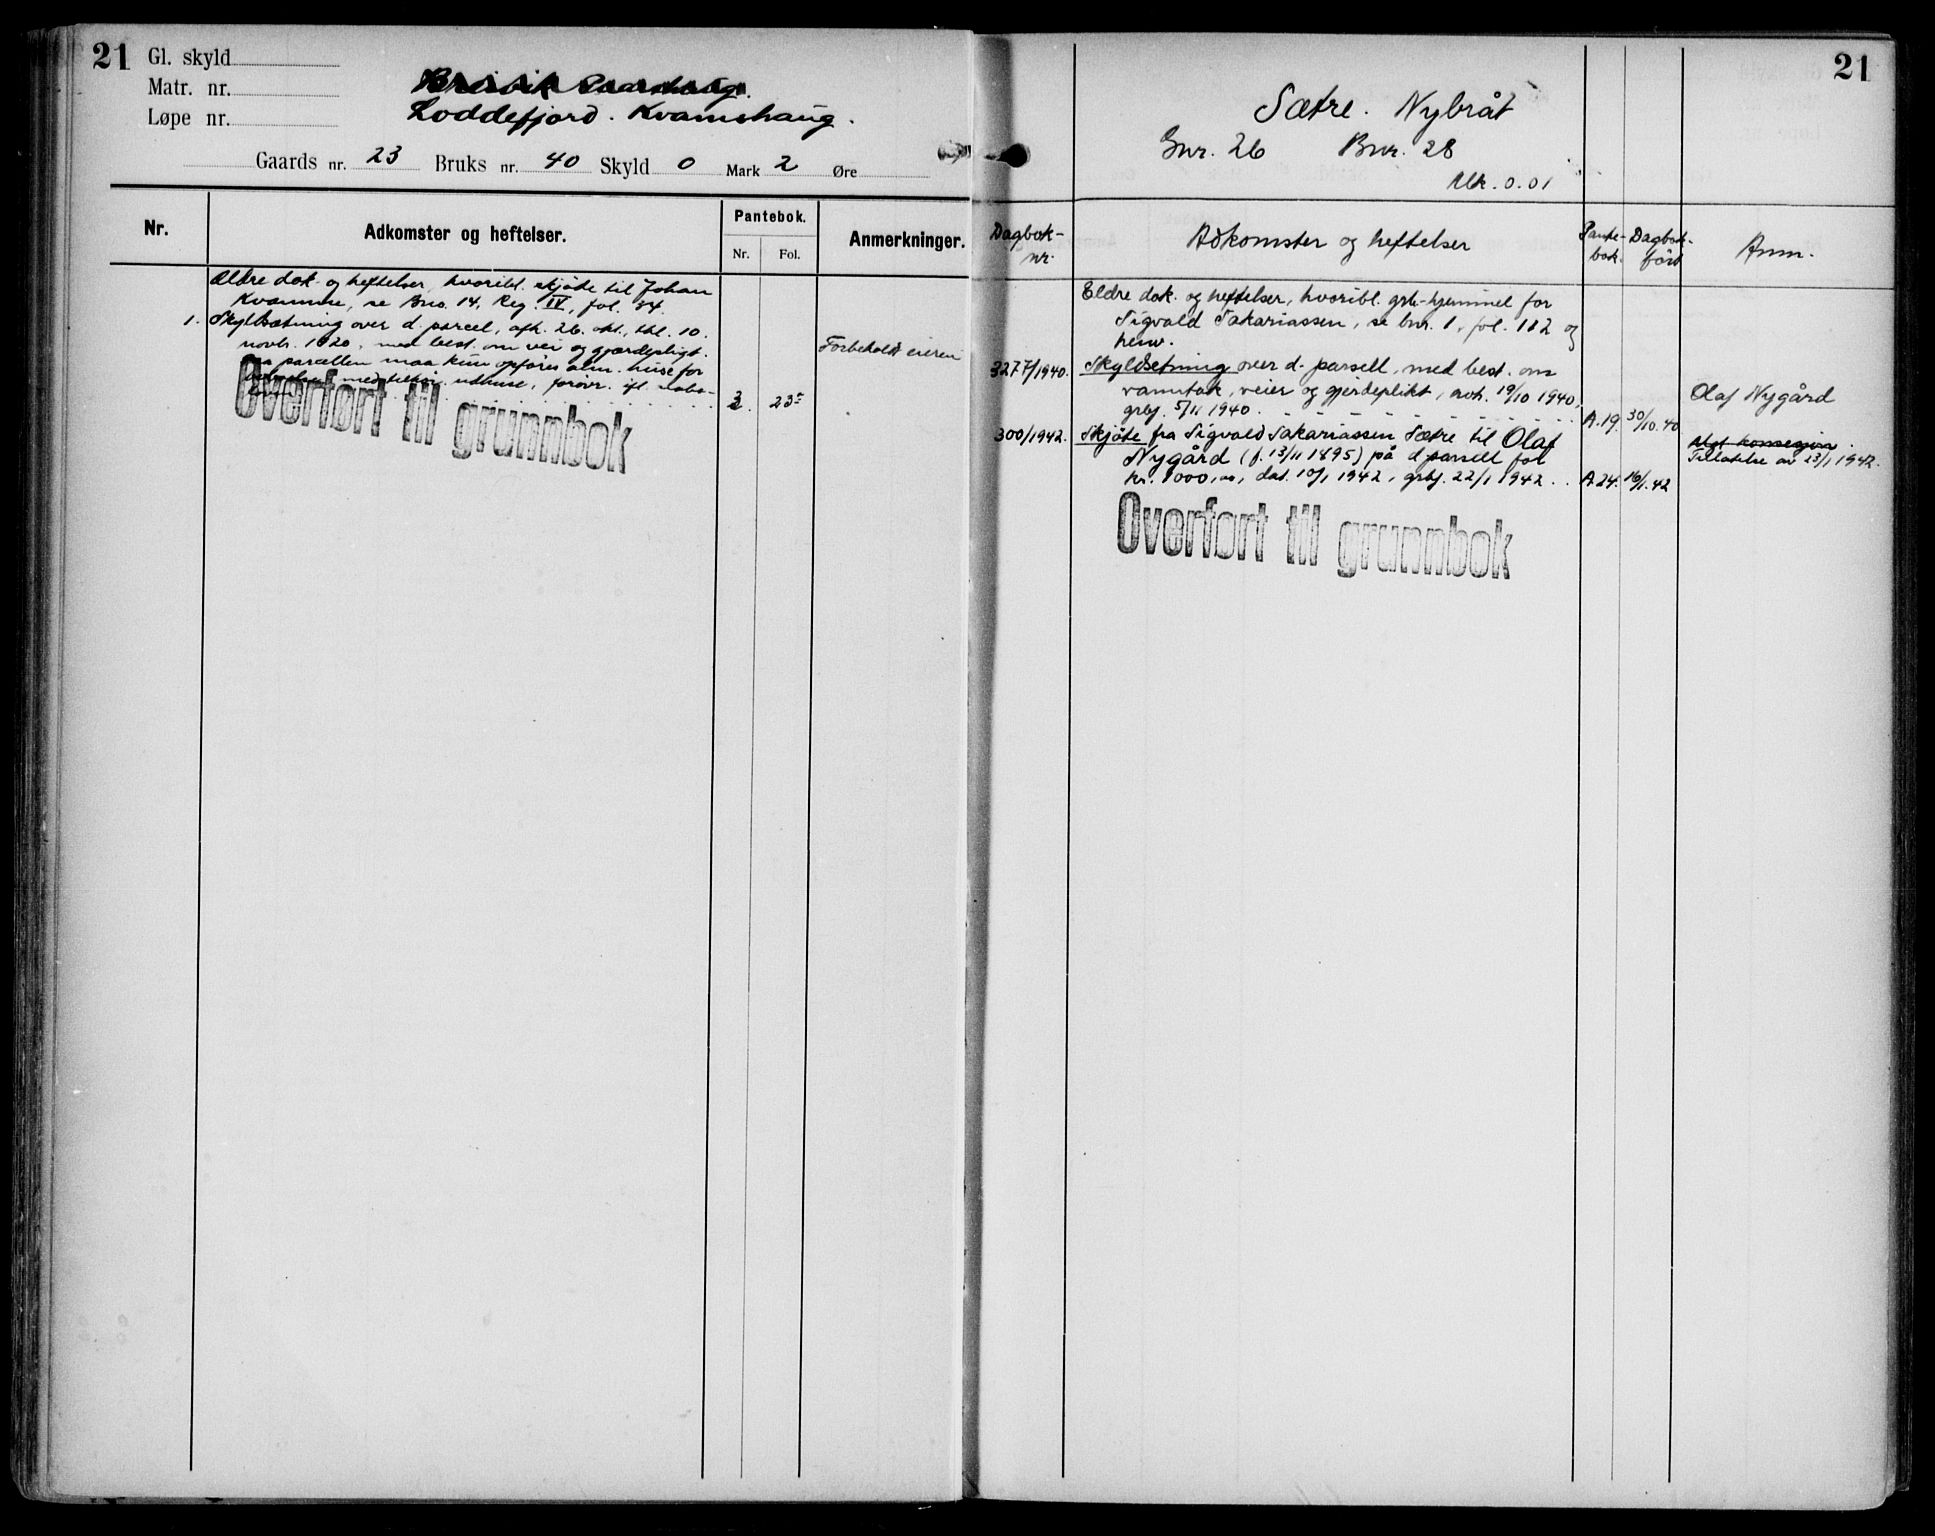 21
Gl. skyld
Matr. nr.
Løpe nr.
Loddefjord. Kvamshaug.
Gaards nr. 23 Bruks nr. 40 Skyld 0 Mark 2 Øre
Nr.
Adkomster og heftelser.
Pantebok.
Nr. Fol.
Anmerkninger.
Ældre dok. og heftelser, hvoribl. skjøte til Johan
Kvamme, se Bno. 14, Reg. IV, fol. 84.
1. Skyldsætning over d. parcel, afh. 26. okt., thl. 10.
novbr. 1920, med best. om vei og gjærdepligt.
paa parcellen maa kun opføres alm. huse for
med udhuse, forøvr. ift. nabo-
3. 235
Forbeholdt eieren
Overført til grunnbok
21
Sætre. Nybråt
Gnr. 26 Bnr. 28
Mk. 0.01
Dagbok-
nr.
Adkomster og heftelser
Pante-
bok.
Dagbok-
ført
Anm.
Eldre dok. og heftelser, hvoribl. grb.-hjemmel for
Sigvald Sakariassen, se bnr. 1, fol. 182 og
henv.
3277/1940. Skyldsetning over d. parsell, med best. om
vanntak, veier og gjerdeplikt, avh. 19/10 1940,
grbf. 5/11 1940. A.19. 30/10.40
Olaf Nygård
300/1942. Skjøte fra Sigvald Sakariassen Sætre til Olaf
Nygård (f. 13/11 1895) på d. parsell for
kr. 1000,00, dat. 10/1 1942, grbf. 22/1 1942. A.24. 16/1.42
konsesjon.
Tillatelse av 23/1 1942.
Overført til grunnbok